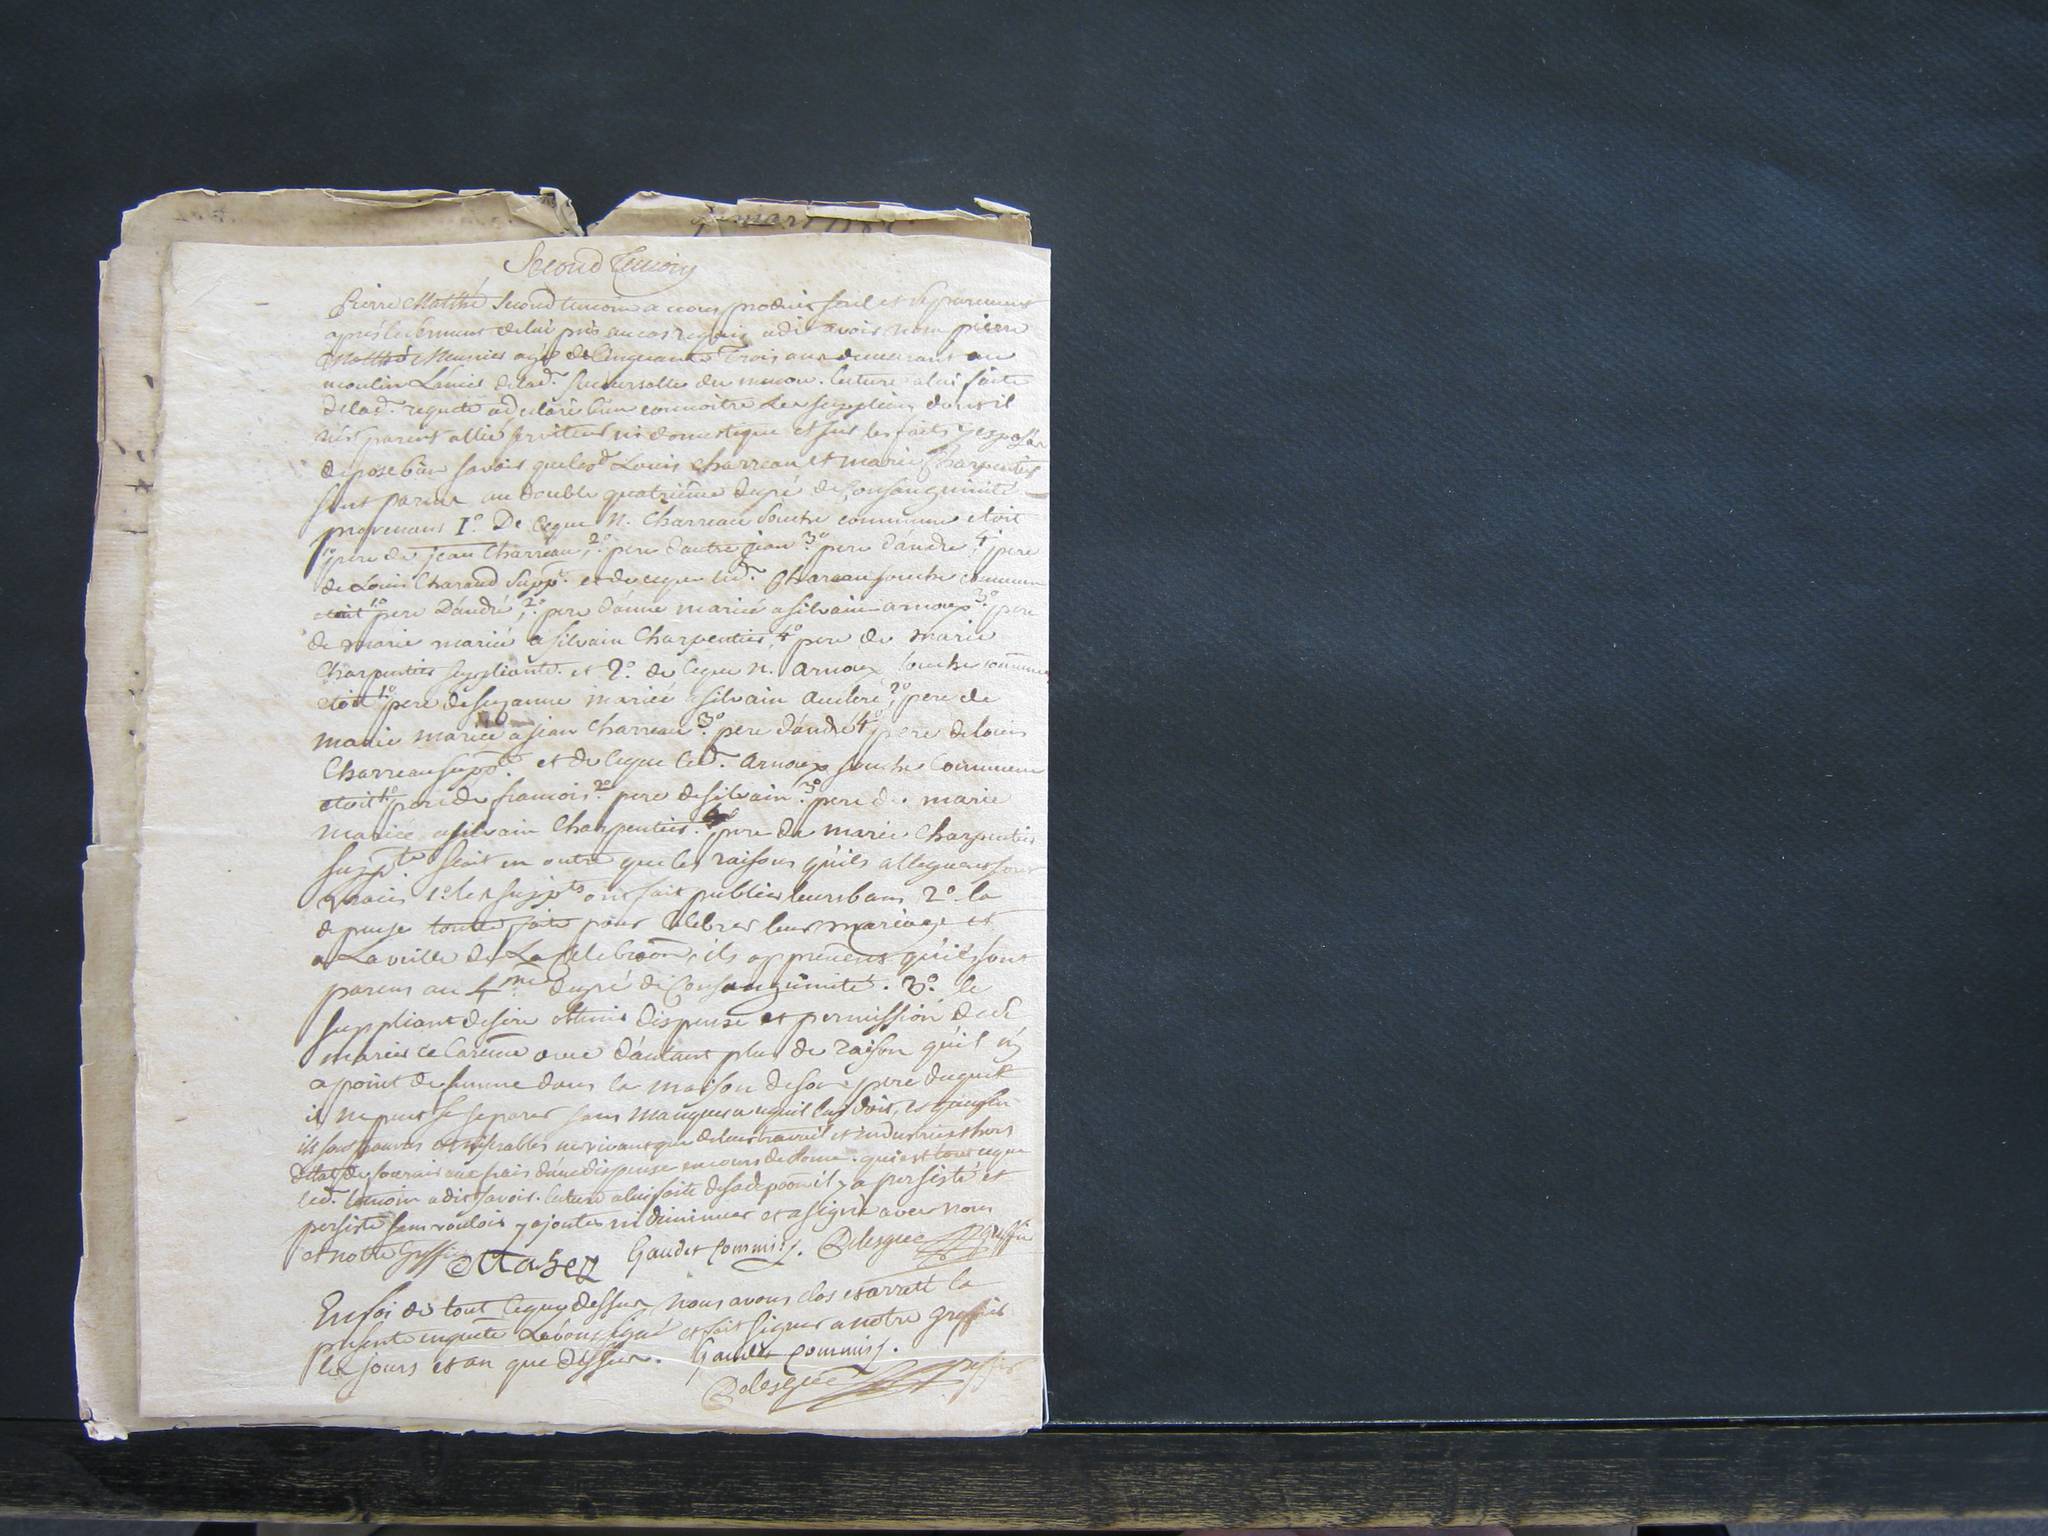 Second Temoin
Pierre Matthé Second temoin a nous produit seul et séparement
après le serment de lui pris au cas requis a dit avoir nom pierre
Matthé Meunier agé de Cinquante Trois ans demeurant au
moulin de lad. succursalle du lecture a lui faite
delad. requete a déclaré bien connoitre les supplians dont il
n'est parent allié serviteur ni domestique et sur les faits y exposés
depose bien savoir que lesd. Louis charreau et marie Charpentier
sont parens au double quatrième degré de Consanguinité
provenans 1º. De ceque N. Charreau Souche commune etoit
1º pere de jean Charreau, 2º. pere d'autre jean 3º. pere d'andré 4º pere
de Louis Charaud Suppt. et de ceque led. Chareau souche commune
etoit 1º pere D'andré, 2º. pere d'anne mariée a silvain arnoux 3º. pere
de marie mariée a silvain Charpentier, 4º pere de marie
Charpentier suppliante. et 2º. de ceque N. arnoux souche commune
etoit 1º pere de suzanne mariée a silvain auclerc, 2º pere de
marie mariée a jean Charreau 3º. pere d'andré 4º pere de louis
Charreau suppt. et de ceque led. arnoux souche Commune
etoit 1º pere de francois 2º. pere de silvain 3º. pere de marie
mariée a silvain Charpentier. 4º pere de marie Charpentier
suppte. scait en outre que les raisons qu'ils alleguent sont
vraies 1º. les suppts ont fait publier leurs bans 2º. la
depense toute faite pour Celebrer leur mariage et
a La veille de La Celebraon, ils apprenent qu'ils sont
parens au 4me degré de Consanguinité. 3º. le
suppliant desire obtenir dispense et permission de se
marier ce Careme avec d'autant plus de raison qu'il n'y
a point de femme dans la maison de son pere duquel
il ne peut se separer sans manquer a ce qu'il lui doit, et qu'enfin
ils sont pauvres et miserables ne vivant que de leur travail et industrie et hors
d'etat de fournir aux frais d'une dispense en cour de Rome. qui est tout ceque
led. temoin a dit savoir. lecture a lui faite de sa depoon il y a persisté et
persiste sans vouloir y ajouter ni diminuer et a signé avec nous
et notre Greffier Gaudet Commiss. Delesguée greffier
En foi de tout ceque dessus nous avons clos et arreté la
presente enquete signé et fait signer a notre greffier
les jours et an que dessus. Gaudet Commiss.
Delesguée greffier